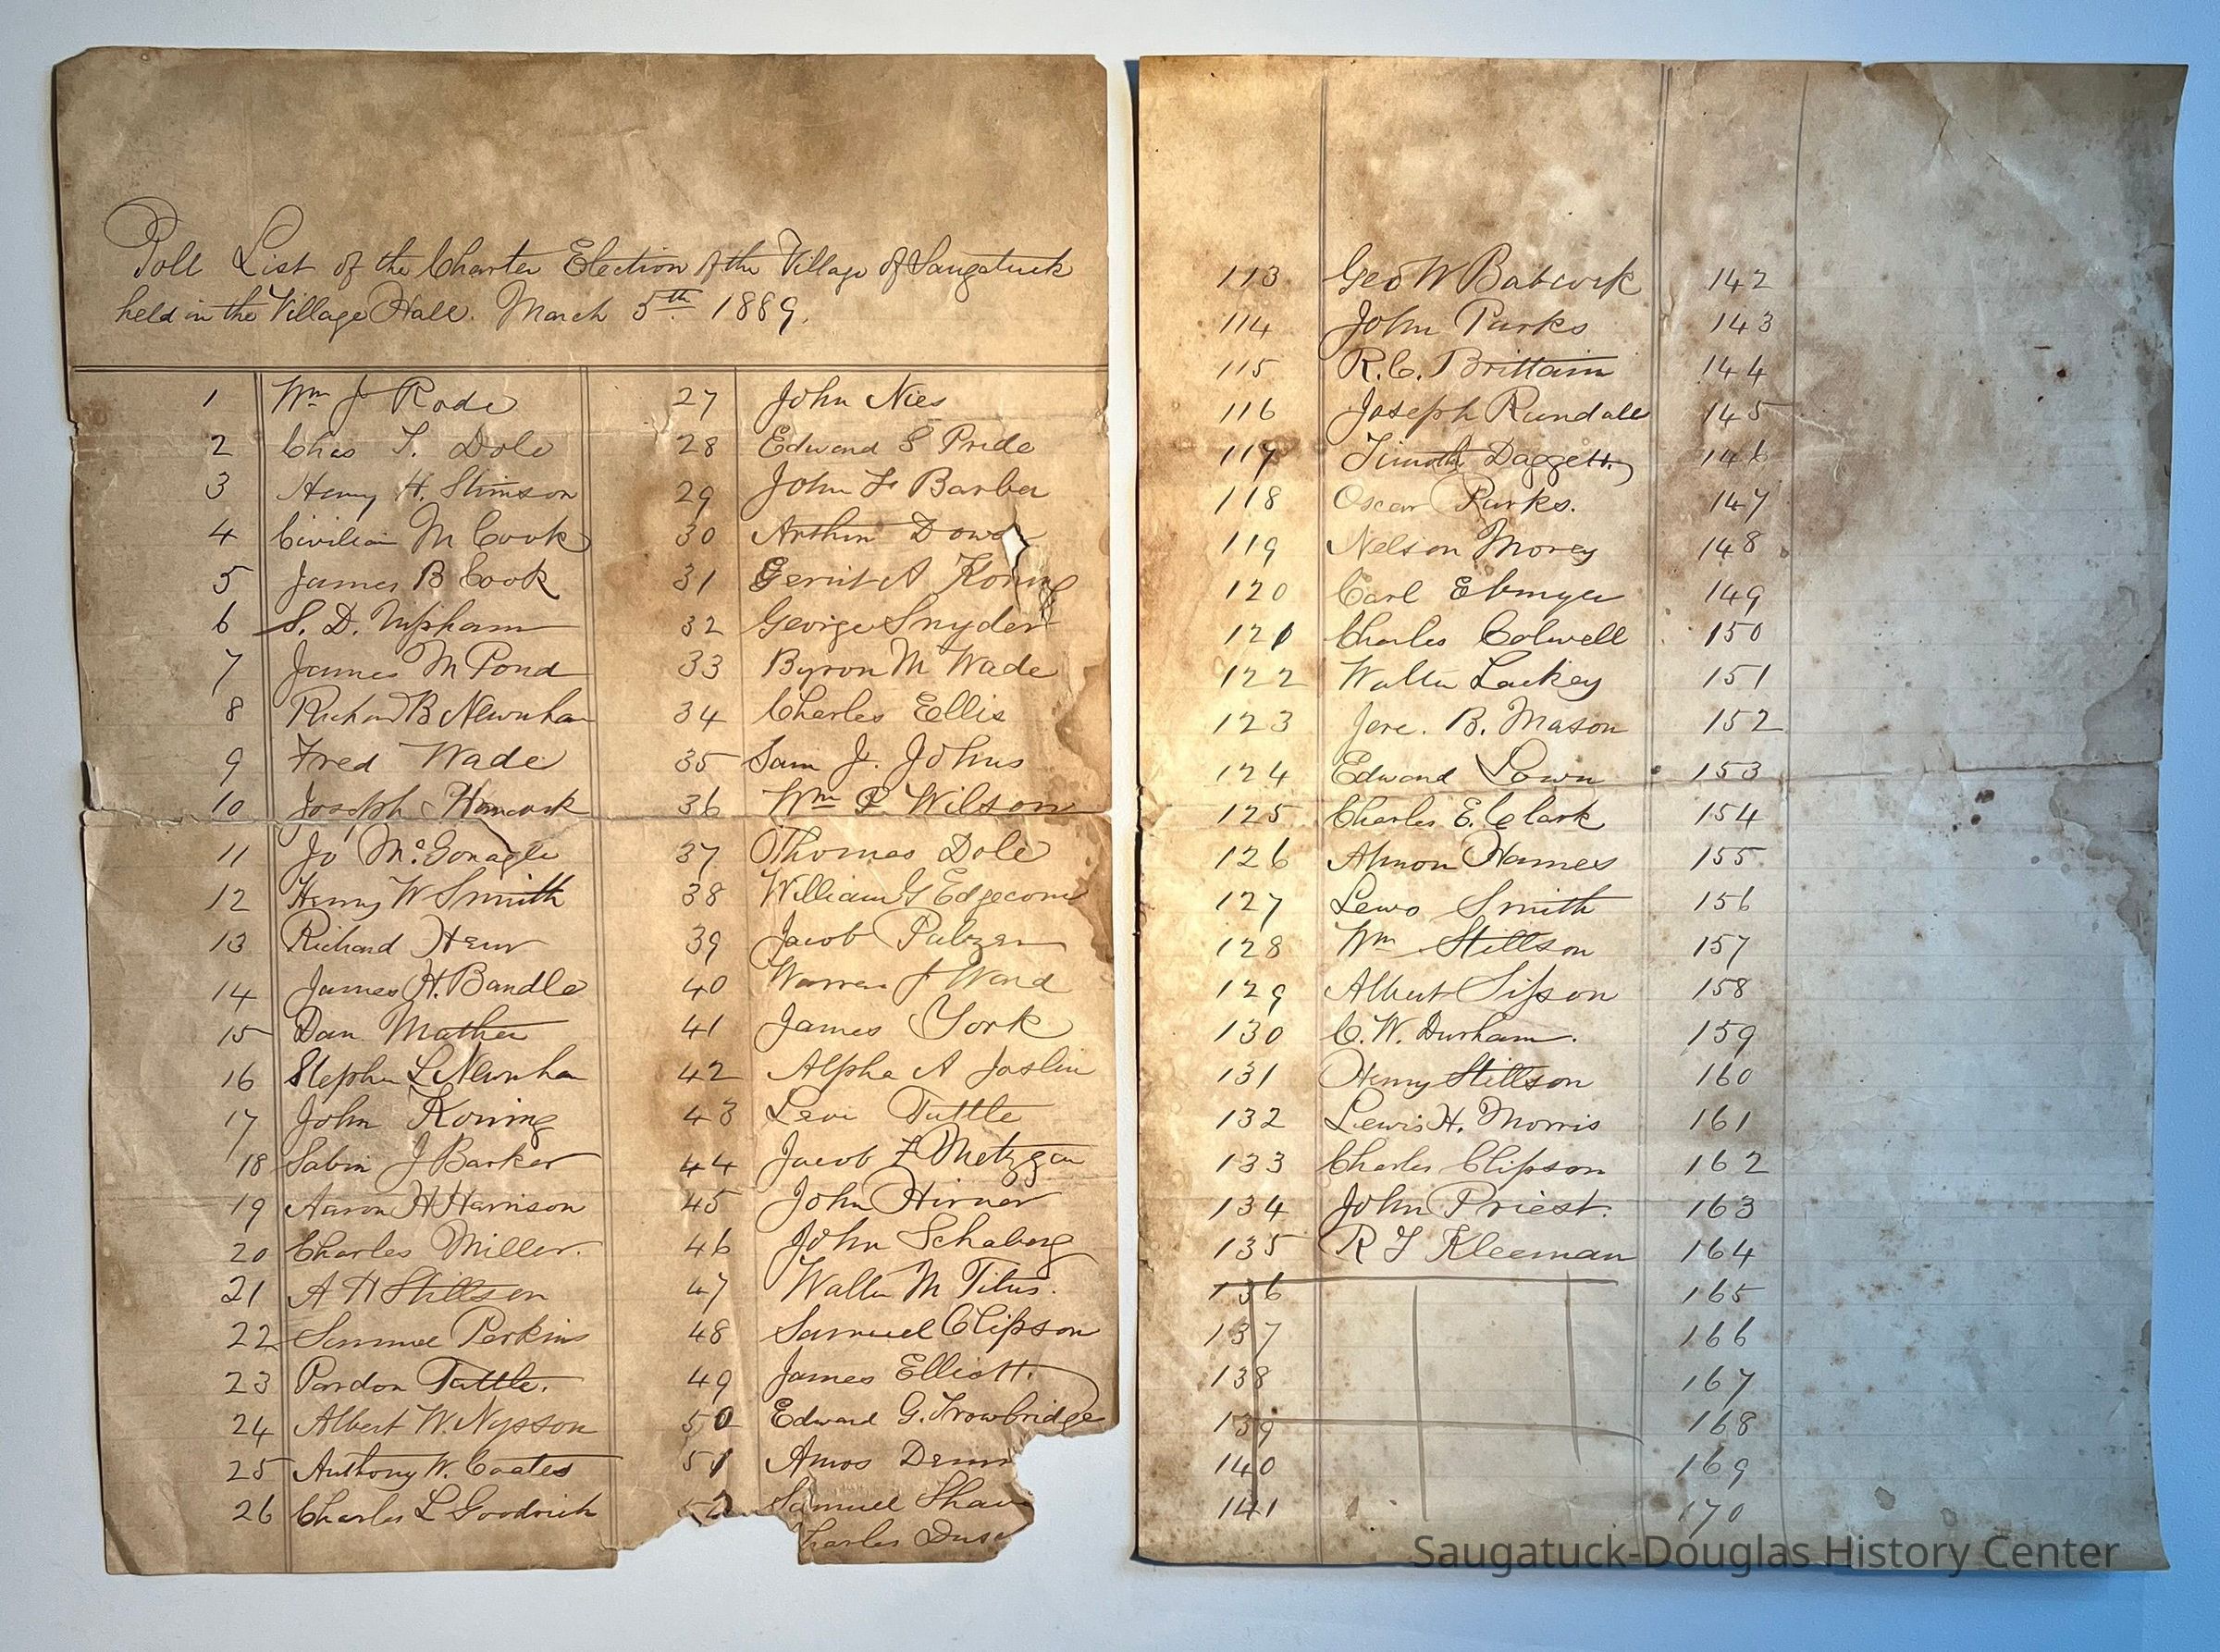 Poll List of the Charter Election of the Village of Saugatuck
held in the Village Hall. March 5th 1889.
1 Wm J Rode
2 Chas T. Dole
3 Henry H. Stimson
4 Civilian M Cook
5 James B Cook
6 S. D. Upham
7 James M Pond
8 Richard B Newnham
9 Fred Wade
10 Joseph Hancock
11 Jo McGonagle
12 Henry W Smith
13 Richard
14 James H. Bandle
15 Dan Mather
16 Stephen L Newnham
17 John Koning
18 Sabin J Barker
19 Aaron H Harrison
20 Charles Miller.
21 A H Stillson
22 Samuel Perkins
23 Pardon Tuttle.
24 Albert W. Nysson
25 Anthony W. Coates
26 Charles L Goodrich
27 John Nies
28 Edward S Pride
29 John F Barber
30 Arthur
31 Gerrit A Koning
32 George Snyder
33 Byron M Wade
34 Charles Ellis
35 Sam J. Johns
36 Wm P. Wilson
37 Thomas Dole
38 William G Edgecomb
39 Jacob
40 Warren J Ward
41 James York
42 Alpha A Joslin
43 Levi Tuttle
44 Jacob F Metzger
45 John Hirner
46 John Schaberg
47 Walter M Titus.
48 Samuel Clipson
49 James Elliott.
50 Edward G. Trowbridge
51 Amos
52 Samuel Shaw
Charles
113 Geo W Babcock
114 John Parks
115 R. C. Brittain
116 Joseph Rundall
117 Timothy Daggett
118 Oscar Parks.
119 Nelson Morey
120 Carl Ebmyer
121 Charles Colwell
122 Walter Lackey
123 Jere. B. Mason
124 Edward Lown
125 Charles E. Clark
126 Almon Hames
127 Lewis Smith
128 Wm Stillson
129 Albert Sipson
130 C. W. Durham.
131 Henry Stillson
132 Lewis H. Morris
133 Charles Clipson
134 John Priest.
135 R T Kleeman
136
137
138
139
140
141
142
143
144
145
146
147
148
149
150
151
152
153
154
155
156
157
158
159
160
161
162
163
164
165
166
167
168
169
170
Saugatuck-Douglas History Center